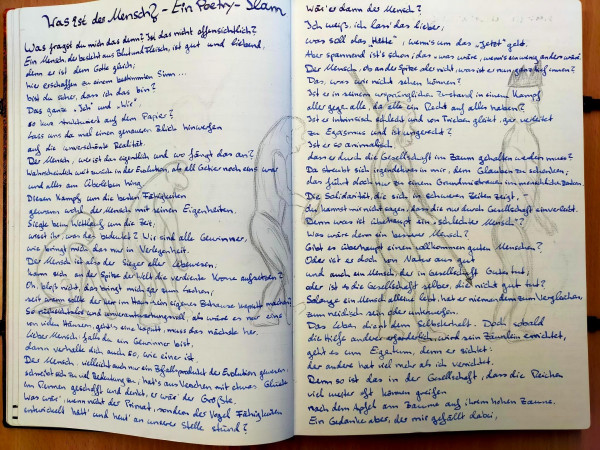 Was ist der Mensch? - Ein Poetry-Slam
Was fragst du mich das denn? Ist das nicht offensichtlich?
Ein Mensch, der besteht aus Blut und Fleisch, ist gut und liebend,
denn er ist dem Gotte gleich,
hier erschaffen zu einem bestimmten Sinn...
bist du sicher, dass ich das bin?
Das ganze "Ich" und "Wir",
so kurz strukturiert auf dem Papier?
Lass uns da mal einen genaueren Blick hinwerfen
auf die unverschönte Realität.
Der Mensch, wer ist das eigentlich und wo fängt das an?
Wahrscheinlich weit zurück in der Evolution, als all Getier noch eins war
und alles am Überleben hing.
Diesen Kampf um die besten Fähigkeiten
gewann wohl der Mensch mit seinen Eigenheiten.
Siegte beim Wettlauf um die Zeit,
weißt ihr, was das bedeutet? Wir sind alle Gewinner,
wie bringt mich das nur in Verlegenheit.
Der Mensch ist also der Sieger aller Lebewesen,
kann sich an der Spitze der Welt die verdiente Krone aufsetzen?
Oh, bloß nicht, das bringt mich gar zum Lachen,
seit wann sollte der vorn im Haus sein eigenes Zuhause kaputt machen?
So rücksichtslos und unverantwortungsvoll, als wäre es nur eine
von vielen Häusern, geht's eins kaputt, muss das nächste her.
Lieber Mensch, falls du ein Gewinner bist,
dann verhalte dich auch so, wie einer ist.
Der Mensch, vielleicht auch nur ein Zufallsprodukt der Evolution gewesen,
schmeißt sich zu viel Bedeutung zu, hat's aus Versehen mit etwas Glück
ins Rennen geschafft und denkt, er wär' der Größte.
Was wär', wenn nicht der Primat, sondern der Vogel Fähigkeiten
entwickelt hätt' und heut' an unserer Stelle stünd'?
Wär' er dann der Mensch?
Ich weiß, ich lass das lieber,
was soll das "Hätte", wenn's um das "Jetzt" geht.
Aber spannend ist's schon, das - was wäre, wenn's ein wenig anders wäre.
Der Mensch, ob an der Spitze oder nicht, was ist er nun ganz tief innen?
Das, was wir nicht sehen können?
Ist er in seinem ursprünglichen Zustand in einem Kampf
aller gegen alle, da alle ein Recht auf alles haben?
Ist er intrinsisch schlecht und von Trieben gleitet, gar verleitet
zu Egoismus und ist ungerecht?
Ist er so animalisch,
dass er durch die Gesellschaft im Zaum gehalten werden muss?
Da sträubt sich irgendetwas in mir, dem Glauben zu schenken,
das führt doch nur zu einem Grundmisstrauen im menschlichen Denken.
Die Solidarität, die sich in schweren Zeiten zeigt, -
du kannst mir nicht sagen, dass die nur durch Gesellschaft einverleibt.
Denn was ist überhaupt ein "schlechter Mensch"?
Was wäre denn ein besserer Mensch?
Gibt es überhaupt einen vollkommen guten Menschen?
Oder ist er doch von Natur aus gut
und auch ein Mensch, der in Gesellschaft Gutes tut,
oder ist es die Gesellschaft selber, die nicht gut tut?
Solange ein Mensch alleine lebt, hat er niemanden zum Vergleichen,
zum neidisch sein oder unterwerfen.
Das Leben dient dem Selbsterhalt. Doch sobald
die Hilfe anderer erforderlich wird, sein Zäunlein errichtet,
geht es um Eigentum, denn er sichtet:
der andere hat viel mehr als ich verrichtet.
Denn so ist das in der Gesellschaft, dass die Reichen
viel weiter oft können greifen
nach dem Apfel am Baume auf ihrem hohen Zaune.
Ein Gedanke aber, der mir gefällt dabei,